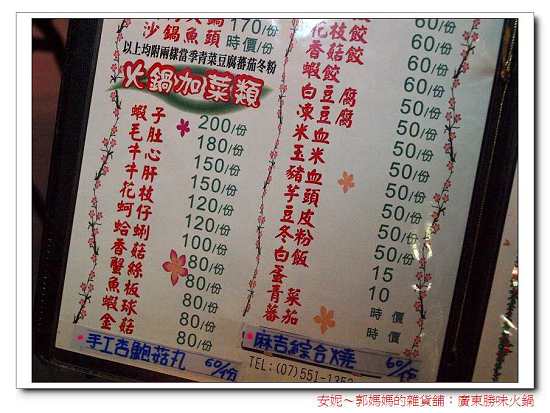 170/份
沙鍋魚頭 時價/份
以上均附兩樣當季青菜豆腐蕃茄冬粉
火鍋加菜類
蝦子 200/份
毛肚 180/份
牛心 150/份
牛肝 150/份
花枝 120/份
蚵仔 120/份
蛤蜊 100/份
香菇 80/份
蟹絲 80/份
魚板 80/份
蝦球 80/份
金菇 80/份
手工杏鮑菇丸 60/份
60/份
花枝餃 60/份
香菇餃 60/份
蝦餃 60/份
白豆腐 50/份
凍豆腐 50/份
米血 50/份
玉米 50/份
豬血 50/份
芋頭 50/份
豆皮 50/份
冬粉 50/份
白飯 15
蛋 10
青菜 時價
蕃茄 時價
麻吉綜合燒 60/份
TEL:(07)551-1358
安妮~郭媽媽的雜貨舖：廣東勝味火鍋